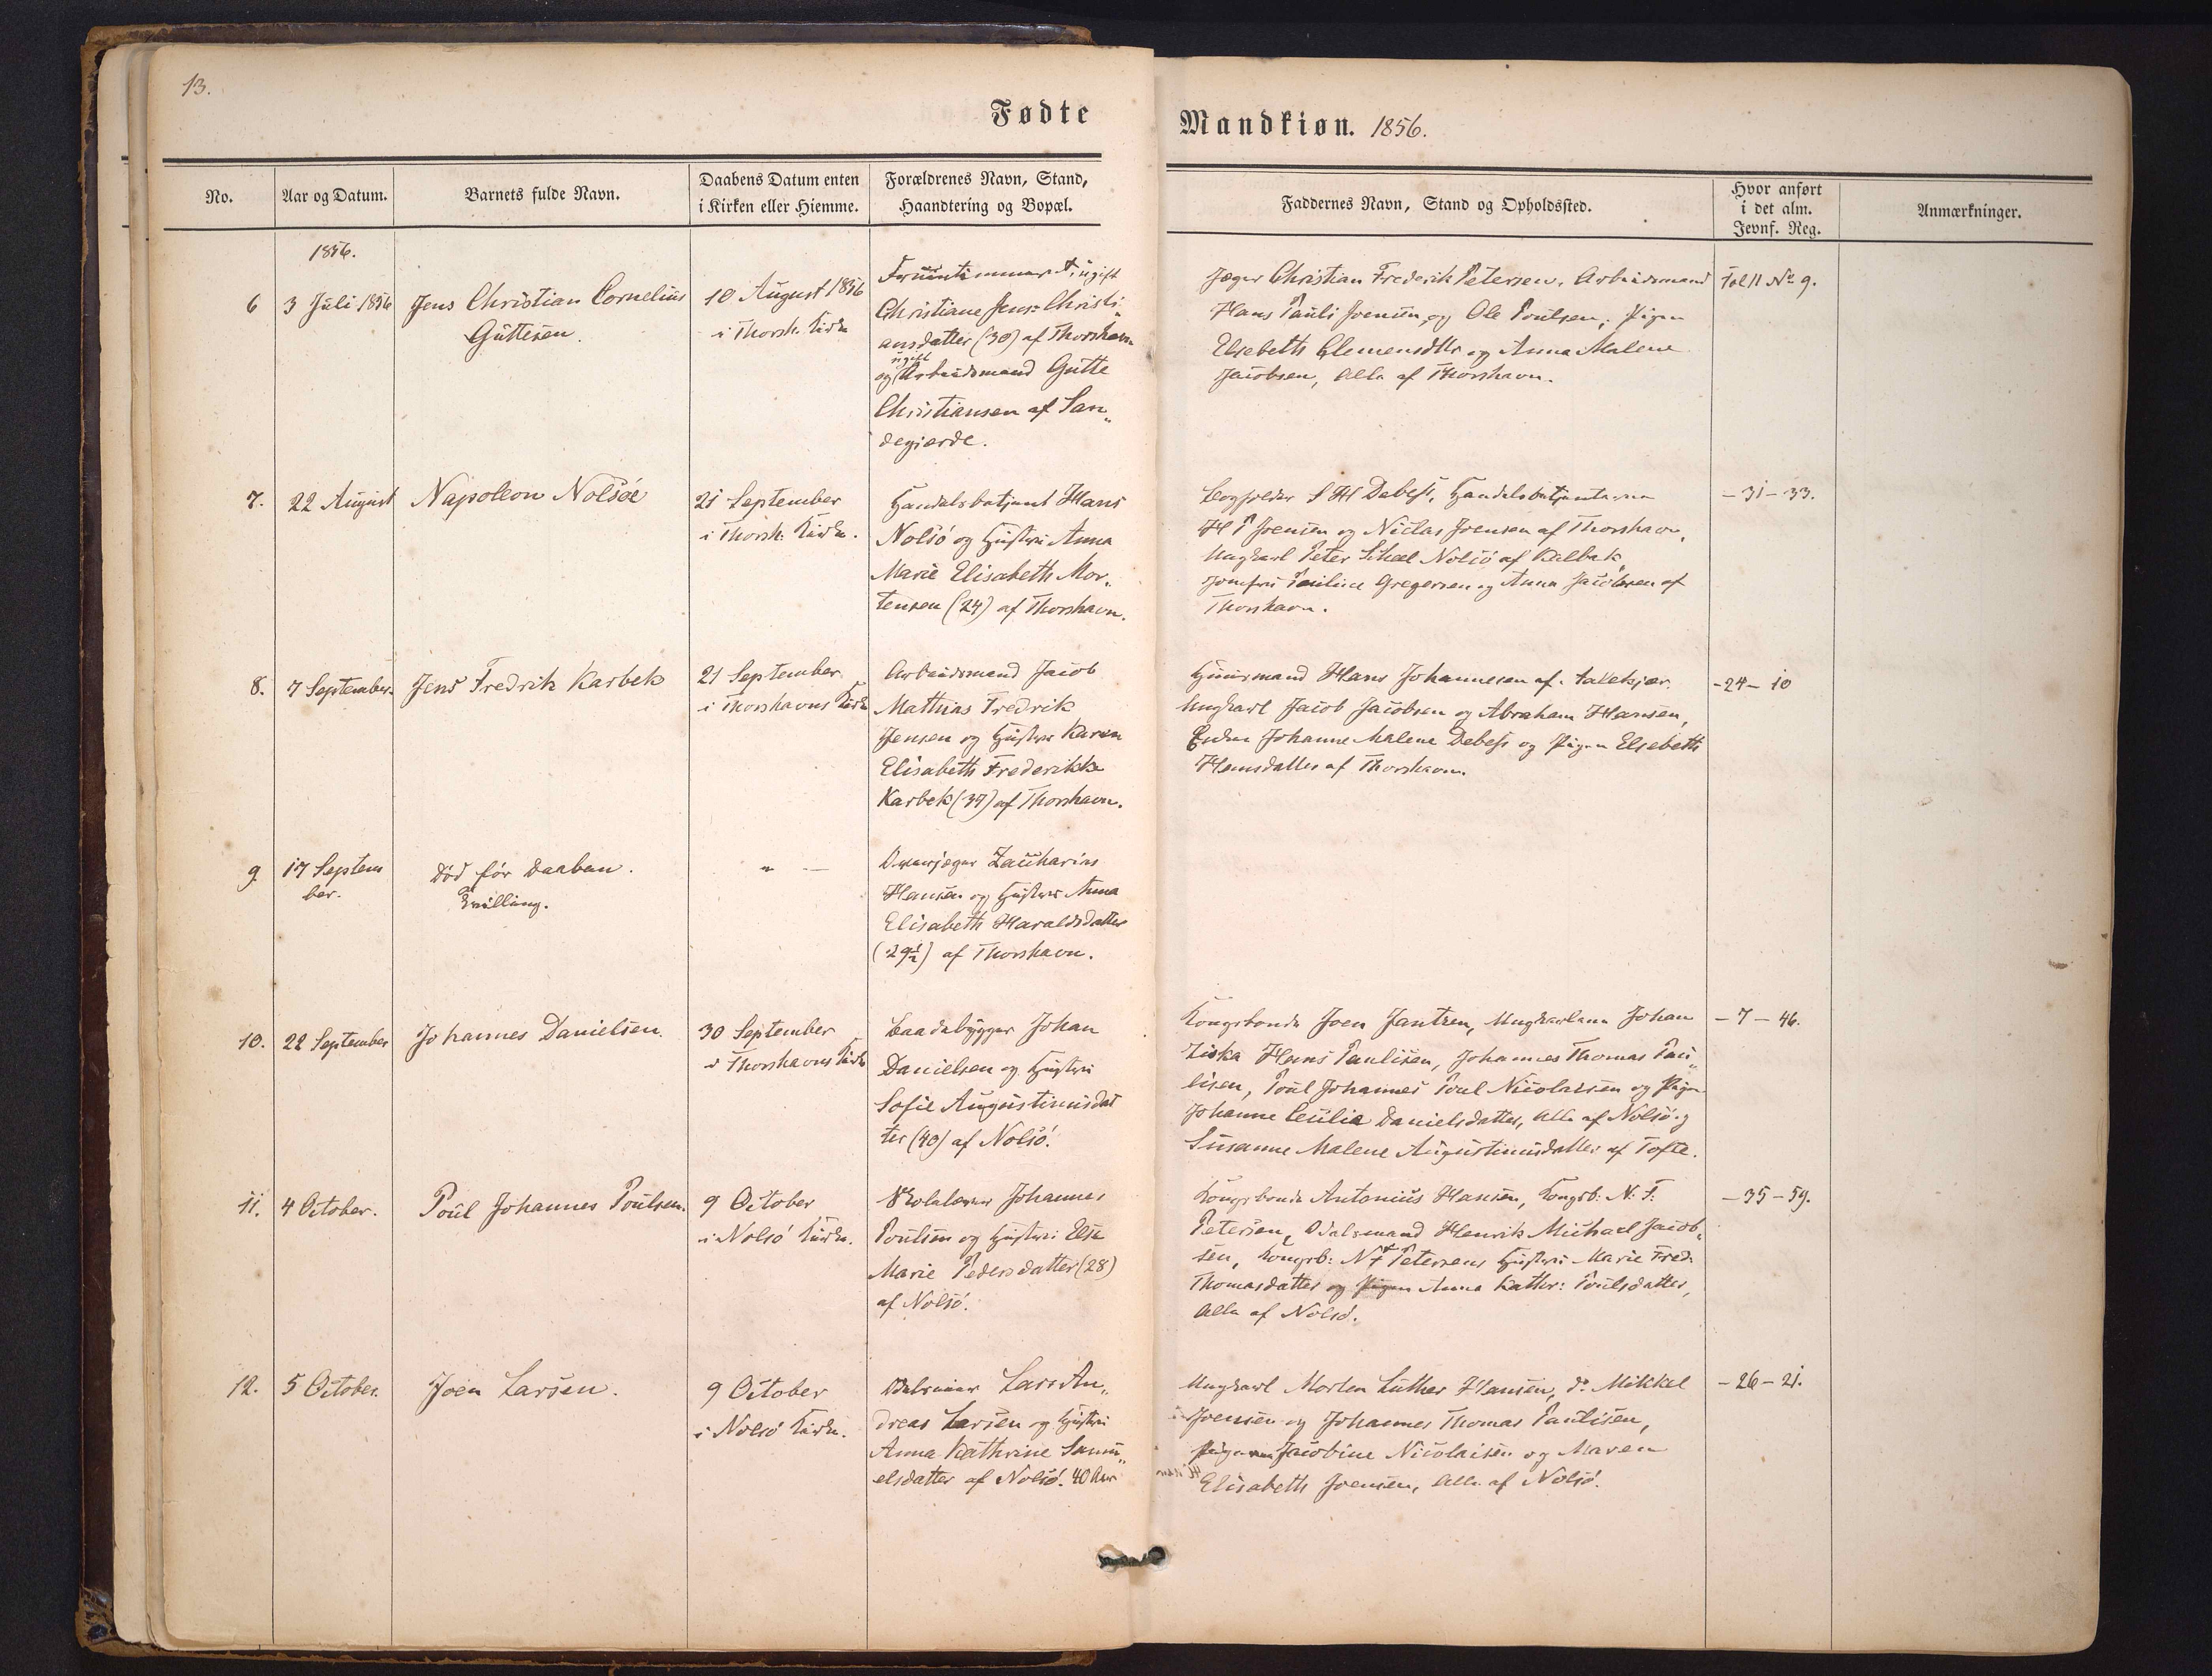 13.
Fødte
Mandkiøn. 1856.
No.
Aar og Datum.
Barnets fulde Navn.
Daabens Datum enten
i Kirken eller Hiemme.
Forældrenes Navn, Stand,
Haandtering og Bopæl.
Faddernes Navn, Stand og Opholdssted.
Hvor anført
i det alm.
Jevnf. Reg.
Anmærkninger.
1856.
6
3 Juli 1856
Jens Christian Cornelius
Guttesen.
10 August 1856
i Thorsh. Kirke
Fruentimmer ugift
Christiane Jens Christi„
ansdatter (30) af Thorshavn
ugift
og Arbeidsmand Gutte
Christiansen af San„
degjerde.
Jæger Christian Frederik Petersen, Arbeidsmand
Hans Pauli Joensen, og Ole Poulsen; Pigen
Elsebeth Clemensdtr og Anna Malene
Jacobsen, Alle af Thorshavn.
Fol 11 No 9.
7.
22 August
Napoleon Nolsøe
21 September
i Thorsh. Kirke.
Handelsbetjent Hans
Nolsö og Hustru Anna
Marie Elisabeth Mor„
tensen (24) af Thorshavn.
Bogholder S H Debess, Handelsbetjenterne
H P Joensen og Niclas Joensen af Thorshavn,
Ungkarl Peter Nolsö af Kalbak,
Jomfru Pauline Gregersen og Anna Jacobsen af
Thorshavn.
- 31 - 33.
8.
7 September
Jens Fredrik Karbek
21 September
i Thorshavns Kirke
Arbeidsmand Jacob
Mathias Fredrik
Jensen og Hustru Karen
Elisabeth Frederikke
Karbek (37) af Thorshavn.
Huusmand Hans Johannesen af
Ungkarl Jacob Jacobsen og Abraham Hansen,
Enke Johanne Malene Debess og Pigen Elsebeth
Hansdatter af Thorshavn.
- 24 - 10
9
17 Septem
ber.
Död för Daaben.
Tvilling.
" -
Zacharias
Hansen og Hustru Anna
Elisabeth Haraldsdatter
(29½) af Thorshavn.
10.
22 September
Johannes Danielsen.
30 September
i Thorshavns Kirke
Baadebygger Johan
Danielsen og Hustru
Sofie Augustinusdat
ter (40) af Nolsö.
Kongsbonde Joen Jantzen, Ungkarlene Johan
Ziska Hans Paulisen, Johannes Thomas Pau„
lisen, Poul Johannes Poul Nicolaisen og Pigen
Johanne Cecilia Danielsdatter, Alle af Nolsö og
Susanne Malene Augustinusdatter af Tofte.
- 7 - 46.
11.
4 October.
Poul Johannes Poulsen.
9 October
i Nolsö Kirke.
Skolelærer Johannes
Poulsen og Hustru Else
Marie Pedersdatter (28)
af Nolsö.
Kongsbonde Antonius Hansen, Kongsb: N: F:
Petersen, Odelsmand Henrik Michael Jacob„
sen, Kongsb: N F Petersens Hustru Marie Fred:
Thomasdatter og Pigen Anna Kathr: Poulsdatter,
Alle af Nolsö.
- 35 - 59.
12.
5 October.
Joen Larsen.
9 October
i Nolsö Kirke.
Lars An„
dreas Larsen og Hustru
Anna Kathrine Samu„
elsdatter af Nolsö. 40 Aar
Ungkarl Morten Luther Hansen, do Mikkel
Joensen og Johannes Thomas Paulisen,
Pigerne Jacobine Nicolaisen og Maren
Elisabeth Joensen, Alle af Nolsö.
- 26 - 21.